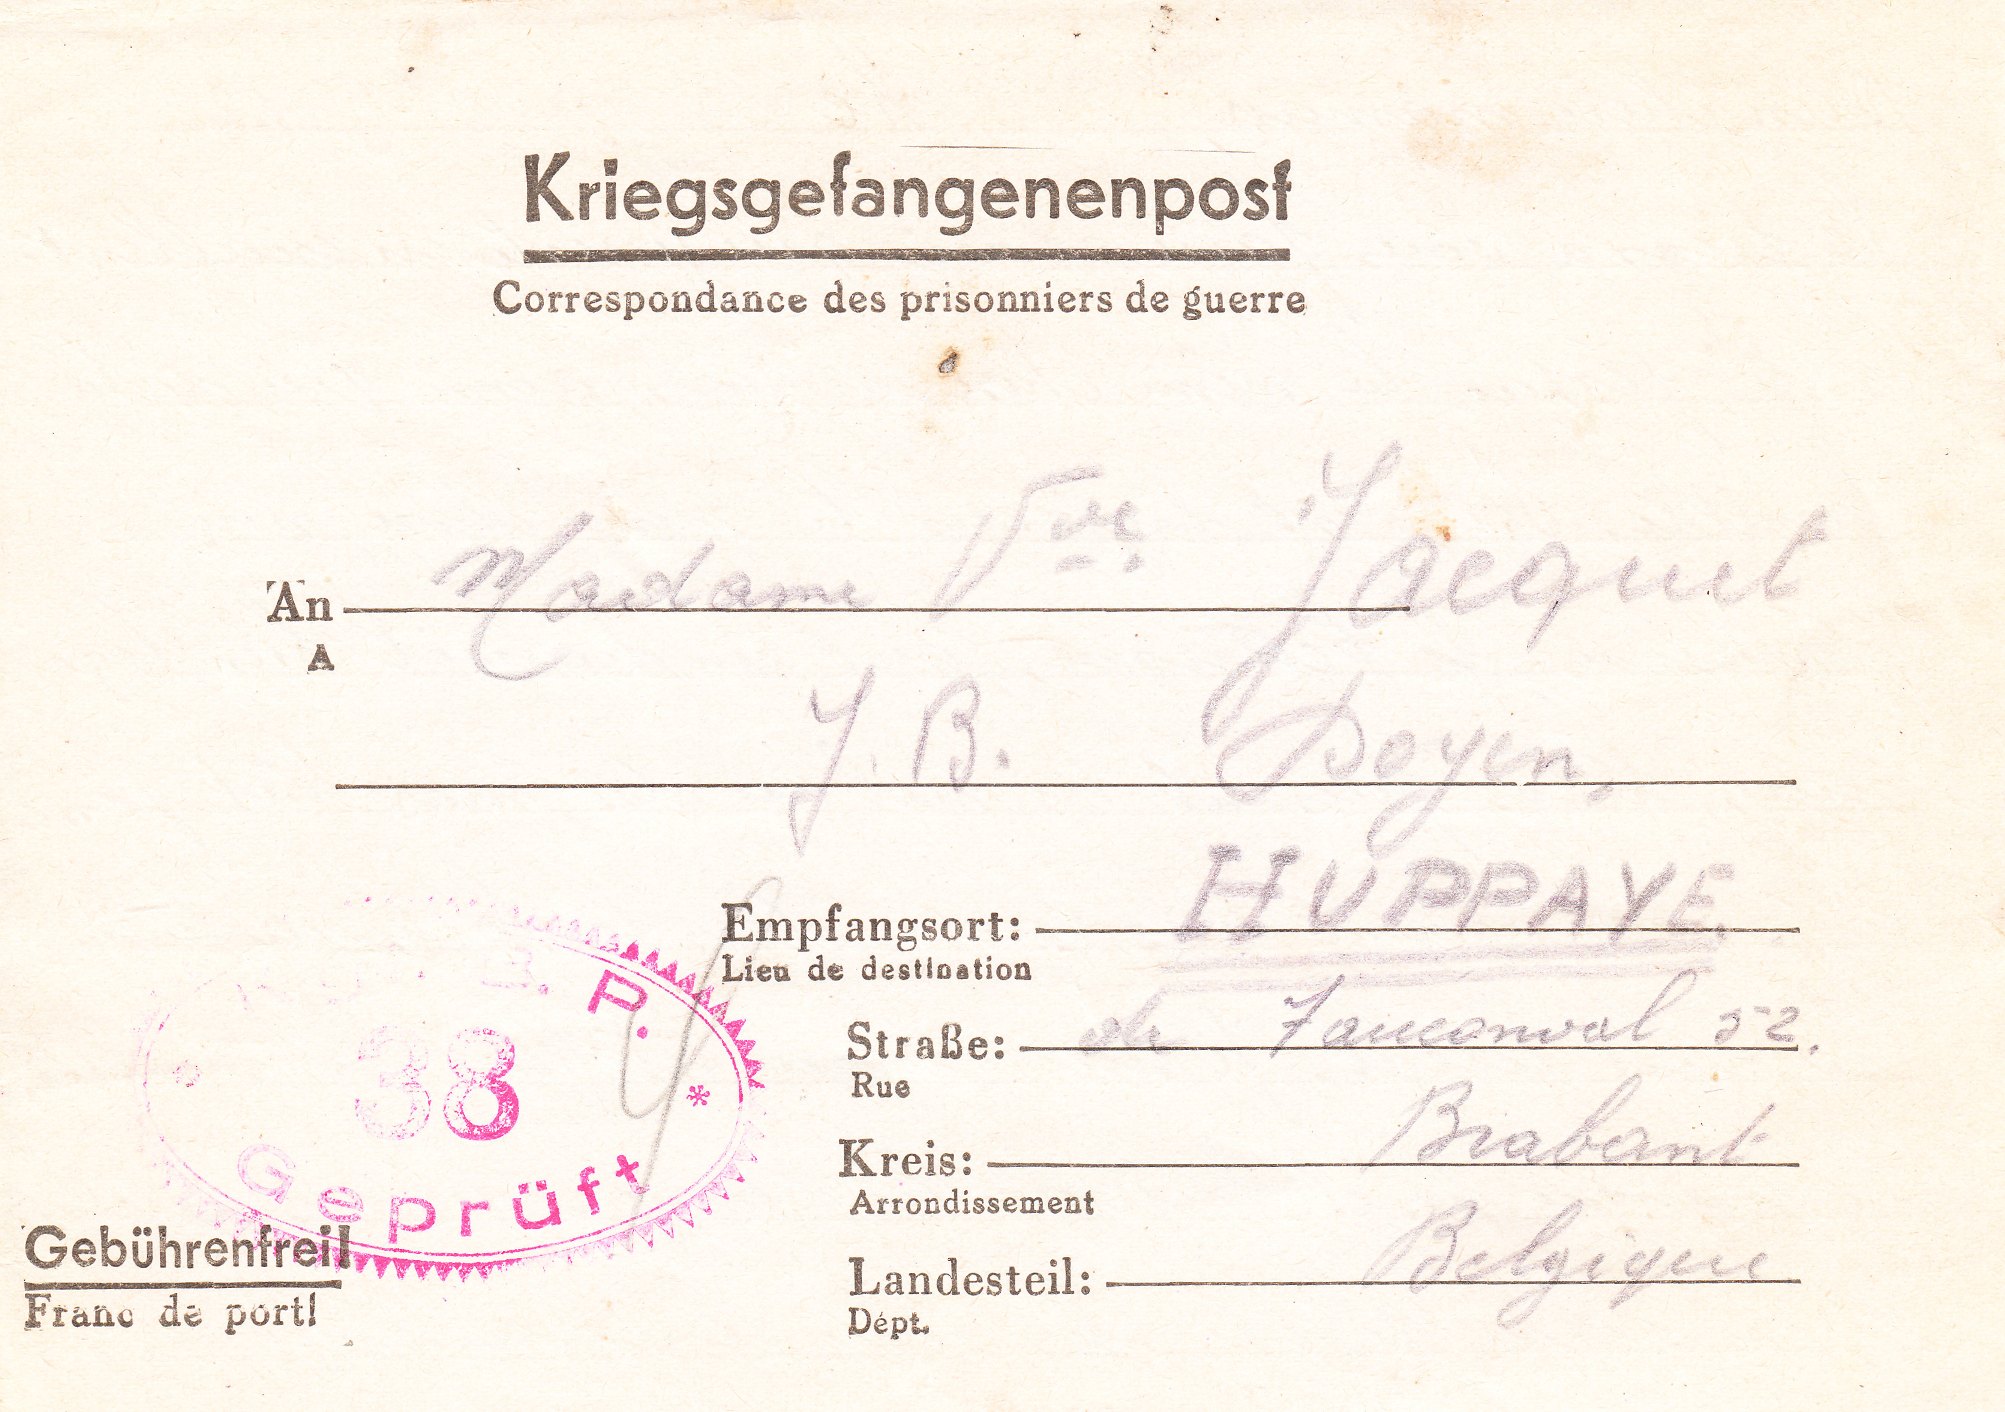 Kriegsgefangenenpost
Correspondance des prisonniers de guerre
An Madame Vve Jacquet
A
J. B. Doyen,
Empfangsort: HUPPAYE.
Lieu de destination
Straße: 52.
Rue
Kreis: Brabant
Arrondissement
Landesteil: Belgique
Dépt.
P.
38
Geprüft
Gebührenfrei!
Franc de port!